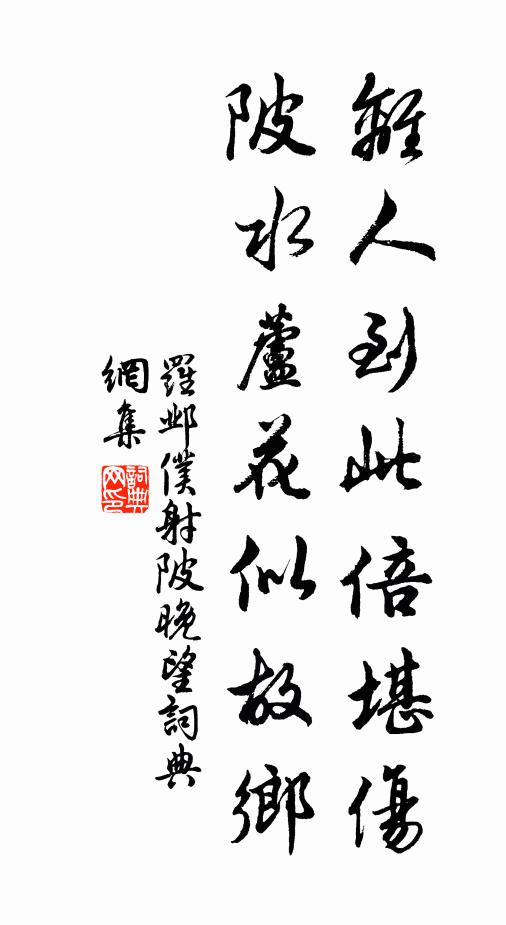 離人到此倍堪傷
陂水蘆花似故鄉
羅鄴僕射陂晚望詞典
網集
詞典
網印